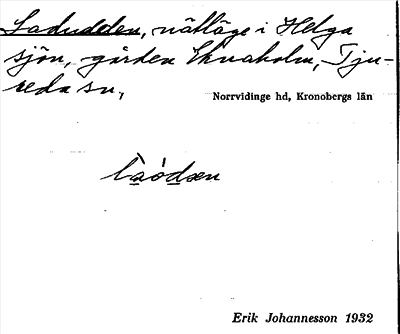 Ladudden, nätläge i Helga
sjön, gården Eknaholm, Tju-
reda sn,
Norrvidinge hd, Kronobergs län
Erik Johannesson 1932